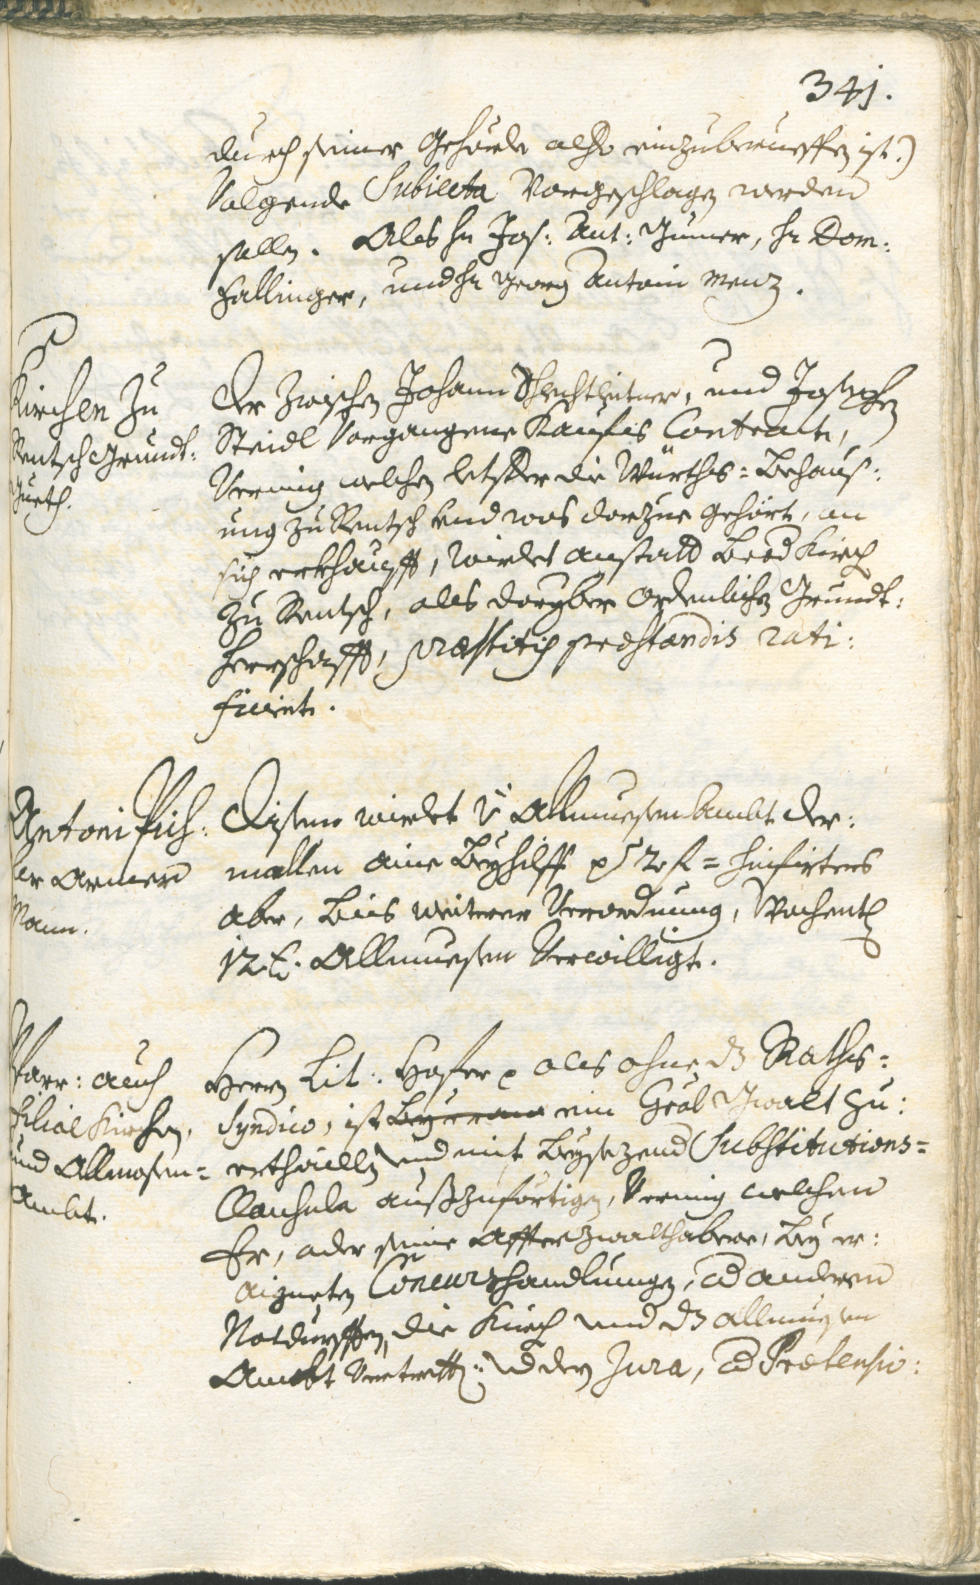 341.
durch seiner Gehörde also einzuberueffen ist.)
Volgende Subiecta Vorgeschlagen werden
sollen. Als hr Jos: Ant: Gumer, hr Dom:
Fallinger, und hr Georg Antoni Menz.
Kirchen zu
Rentsch Grundt:
gueth.
Der zwischen Johann Thechtlzitner, und Josephen
Steidl Vorgangene Kaufs Contract,
Vermig welchen letster die Würths=Behaus:
ung zu Rentsch und was darzue gehört, an
sich erkhaufft, wirdet anstatt Lbed Kirch
zu Rentsch, als darüber ordenlichen Grundt:
herrschafft, praestitis praestandis rati:
ficiert.
Antoni Pich:
ler Armer
Mann.
Disem wirdet v: Allmuesenambt der:
mallen aine Beyhilff p 52 f = hinfirters
aber, bis weiterer Verordnung, Wochentl
12 X. Allmuesen Verwilligt.
Pfarr: auch
Filial Kirchen,
und Allmosen=
Ambt.
Herrn Lit: Hofer p als ohne ds Raths=
Syndico, ist ein Gral Gwalt zu:
erthaillen und mit Beysezend Substitutions=
Clausula ausszufertigen, Vermig welchen
Er, oder seine Afftergwalthabere, bey er:
aigneten Concurshandlungen, ad anderen
Notdurfften, die Kirch und ds Allmuesen
Ambt Vertretten: und der Jura, ad Praetensio: